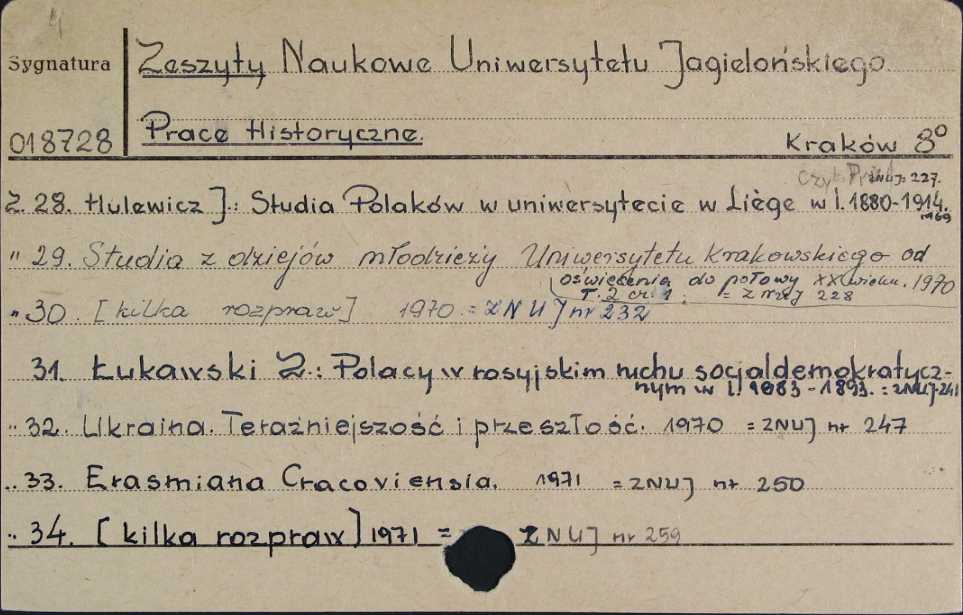 4
Sygnatura
Zeszyty Naukowe Uniwersytetu Jagielońskiego
018728
Prace Historyczne.
Kraków 8°
= ZNUJ: 227.
Z. 28. Hulewicz J.: Studia Polaków w uniwersytecie w Liège w l. 1880-1914.
1969
" 29. Studia z dziejów młodzieży Uniwersytetu Krakowskiego od
oświecenia do połowy XX wieku. 1970
T. 2 cz. 1. = Z nrzej 228
" 30. [kilka rozpraw] 1970. = ZNUJ nr 232
31. Łukawski Z.: Polacy w rosyjskim ruchu socjaldemokratycz-
nym w l. 1883-1893. = ZNUJ-241
" 32. Ukraina. Teraźniejszość i przeszłość. 1970 = ZNUJ nr 247
" 33. Erasmiana Cracoviensia. 1971 = ZNUJ nr 250
" 34. [kilka rozpraw] 1971 = ZNUJ nr 259